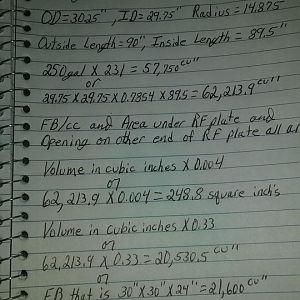 OD=30.25", ID=29.75" Radius=14.875
Outside Length=90", Inside Length=89.5"
250gal X 231 = 57,750 cu"
or
29.75 X 29.75 X 0.7854 X 89.5 = 62,213.9 cu"
FB/cc and Area under RF plate and
Opening on other end of RF plate all ar
Volume in cubic inches X 0.004
or
62,213.9 X 0.004 = 248.8 square inch's
Volume in cubic inches X 0.33
or
62,213.9 X 0.33 = 20,530.5 cu"
FB that is 30" X 30" X 24" = 21,600 cu"